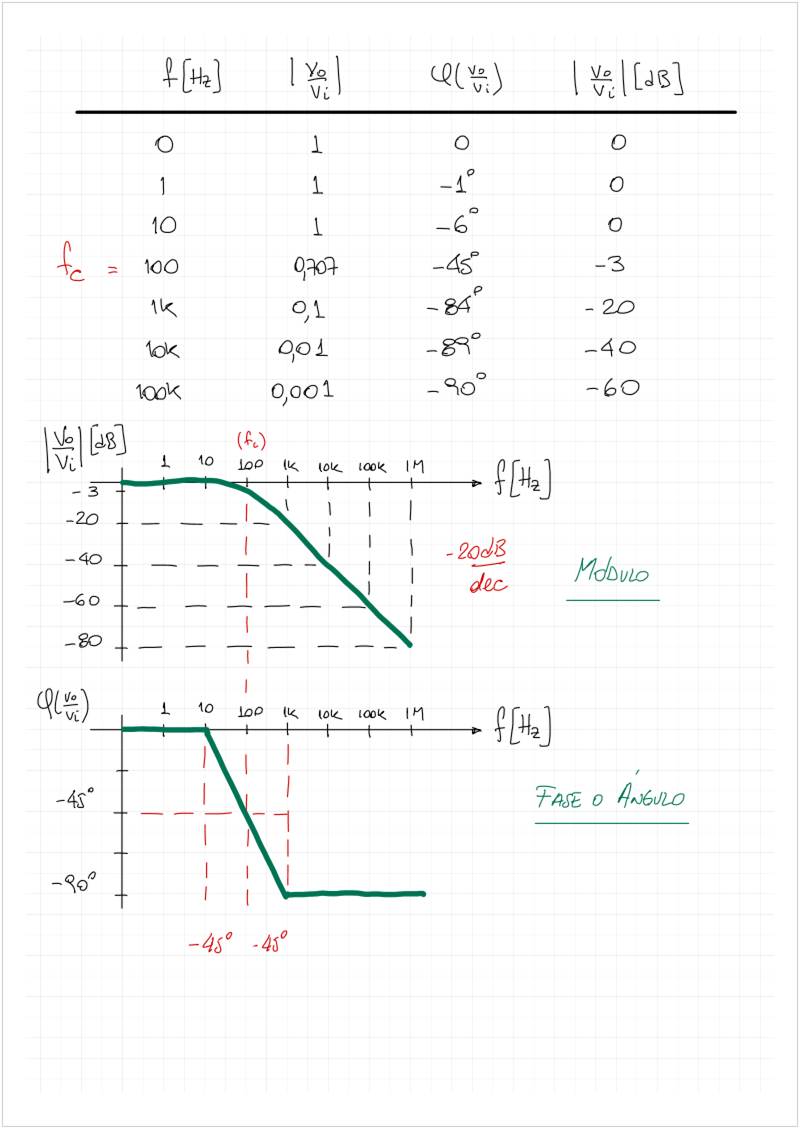 f [Hz] |Vo/Vi| φ(Vo/Vi) |Vo/Vi| [dB]
0 1 0 0
1 1 -1° 0
10 1 -6° 0
fc = 100 0,707 -45° -3
1K 0,1 -84° -20
10K 0,01 -89° -40
100K 0,001 -90° -60
|Vo/Vi| [dB]
(fc)
1 10 100 1K 10K 100K 1M
f [Hz]
-3
-20
-40
-60
-80
-20dB/dec
MÓDULO
φ(Vo/Vi)
1 10 100 1K 10K 100K 1M
f [Hz]
-45°
-90°
FASE O ÁNGULO
-45° -45°